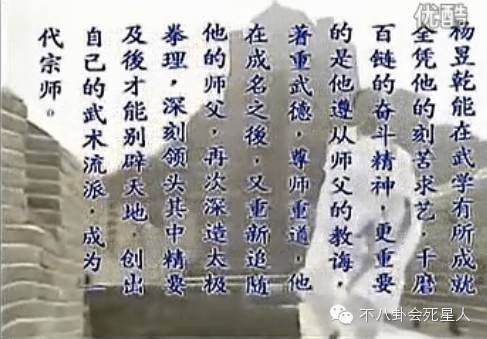 优酷
杨昱乾能在武学有所成就
全凭他的刻苦求艺，千磨
百链的奋斗精神，更重要
的是他遵从师父的教诲，
著重武德，尊师重道，他
在成名之後，又重新追随
他的师父，再次深造太极
拳理，深刻领头其中精要
及後才能别辟天地，创出
自己的武术流派，成为一
代宗师。
不八卦会死星人